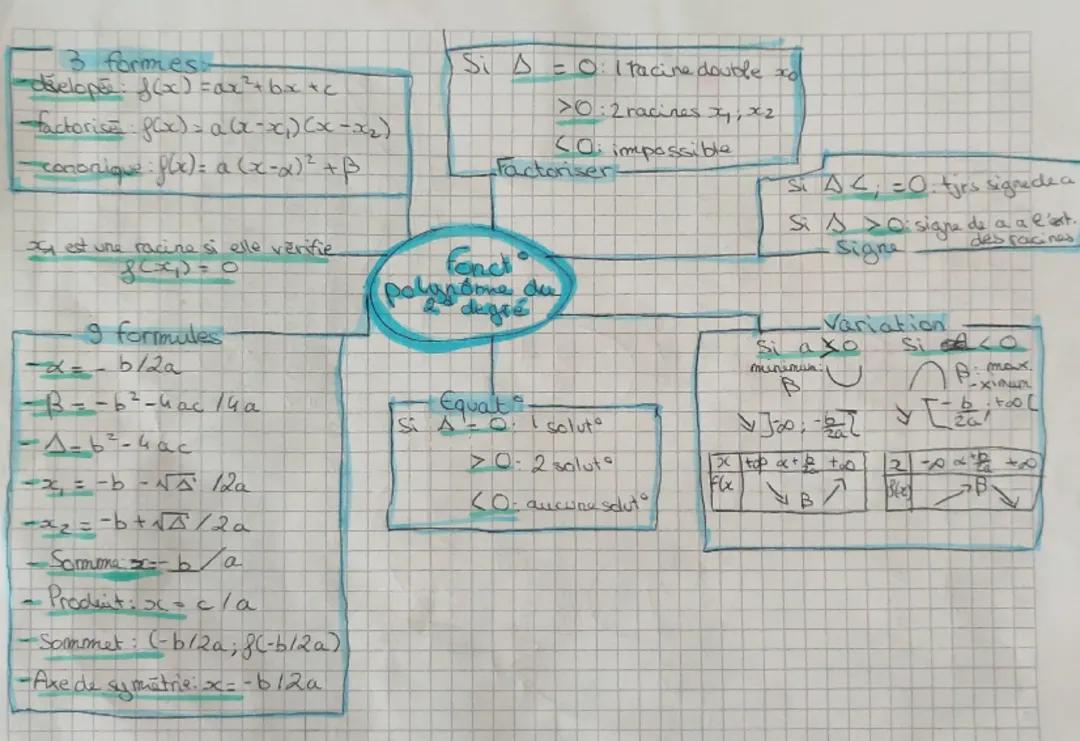 3 formes
- dévelopée : f(x) = ax² + bx + c
- factorisé : f(x) = a(x-x₁)(x-x₂)
- canonique : f(x) = a(x-α)² + β
Si Δ = 0 : 1 racine double x₀
>0 : 2 racines x₁ ; x₂
<0 : impossible
Factoriser
Si Δ < ; = 0 : tjrs signe de a
Si Δ > 0 : signe de a a l'ext.
des racines
Signe
x₁ est une racine si elle vérifie
f(x₁) = 0
Fonct°
polynôme du
2d degré
9 formules
- α = - b/2a
- β = -b²-4ac /4a
- Δ = b²-4ac
- x₁ = -b - √Δ /2a
- x₂ = -b + √Δ /2a
- Somme : x = - b/a
- Produit : x = c/a
- Sommet : (-b/2a ; f(-b/2a)
- Axe de symétrie : x = -b/2a
Equat°
Si Δ = 0 : 1 solut°
> 0 : 2 solut°
<0 : aucune solut°
Variation
Si a > 0
minimum :
β
↘ ]-∞ ; -b/2a[
x +∞ α +∞
f(x ↘ β ↗
Si < 0
β : max
-ximum
↘ [-b/2a ; +∞[
x -∞ α +∞
f(x) ↗ β ↘